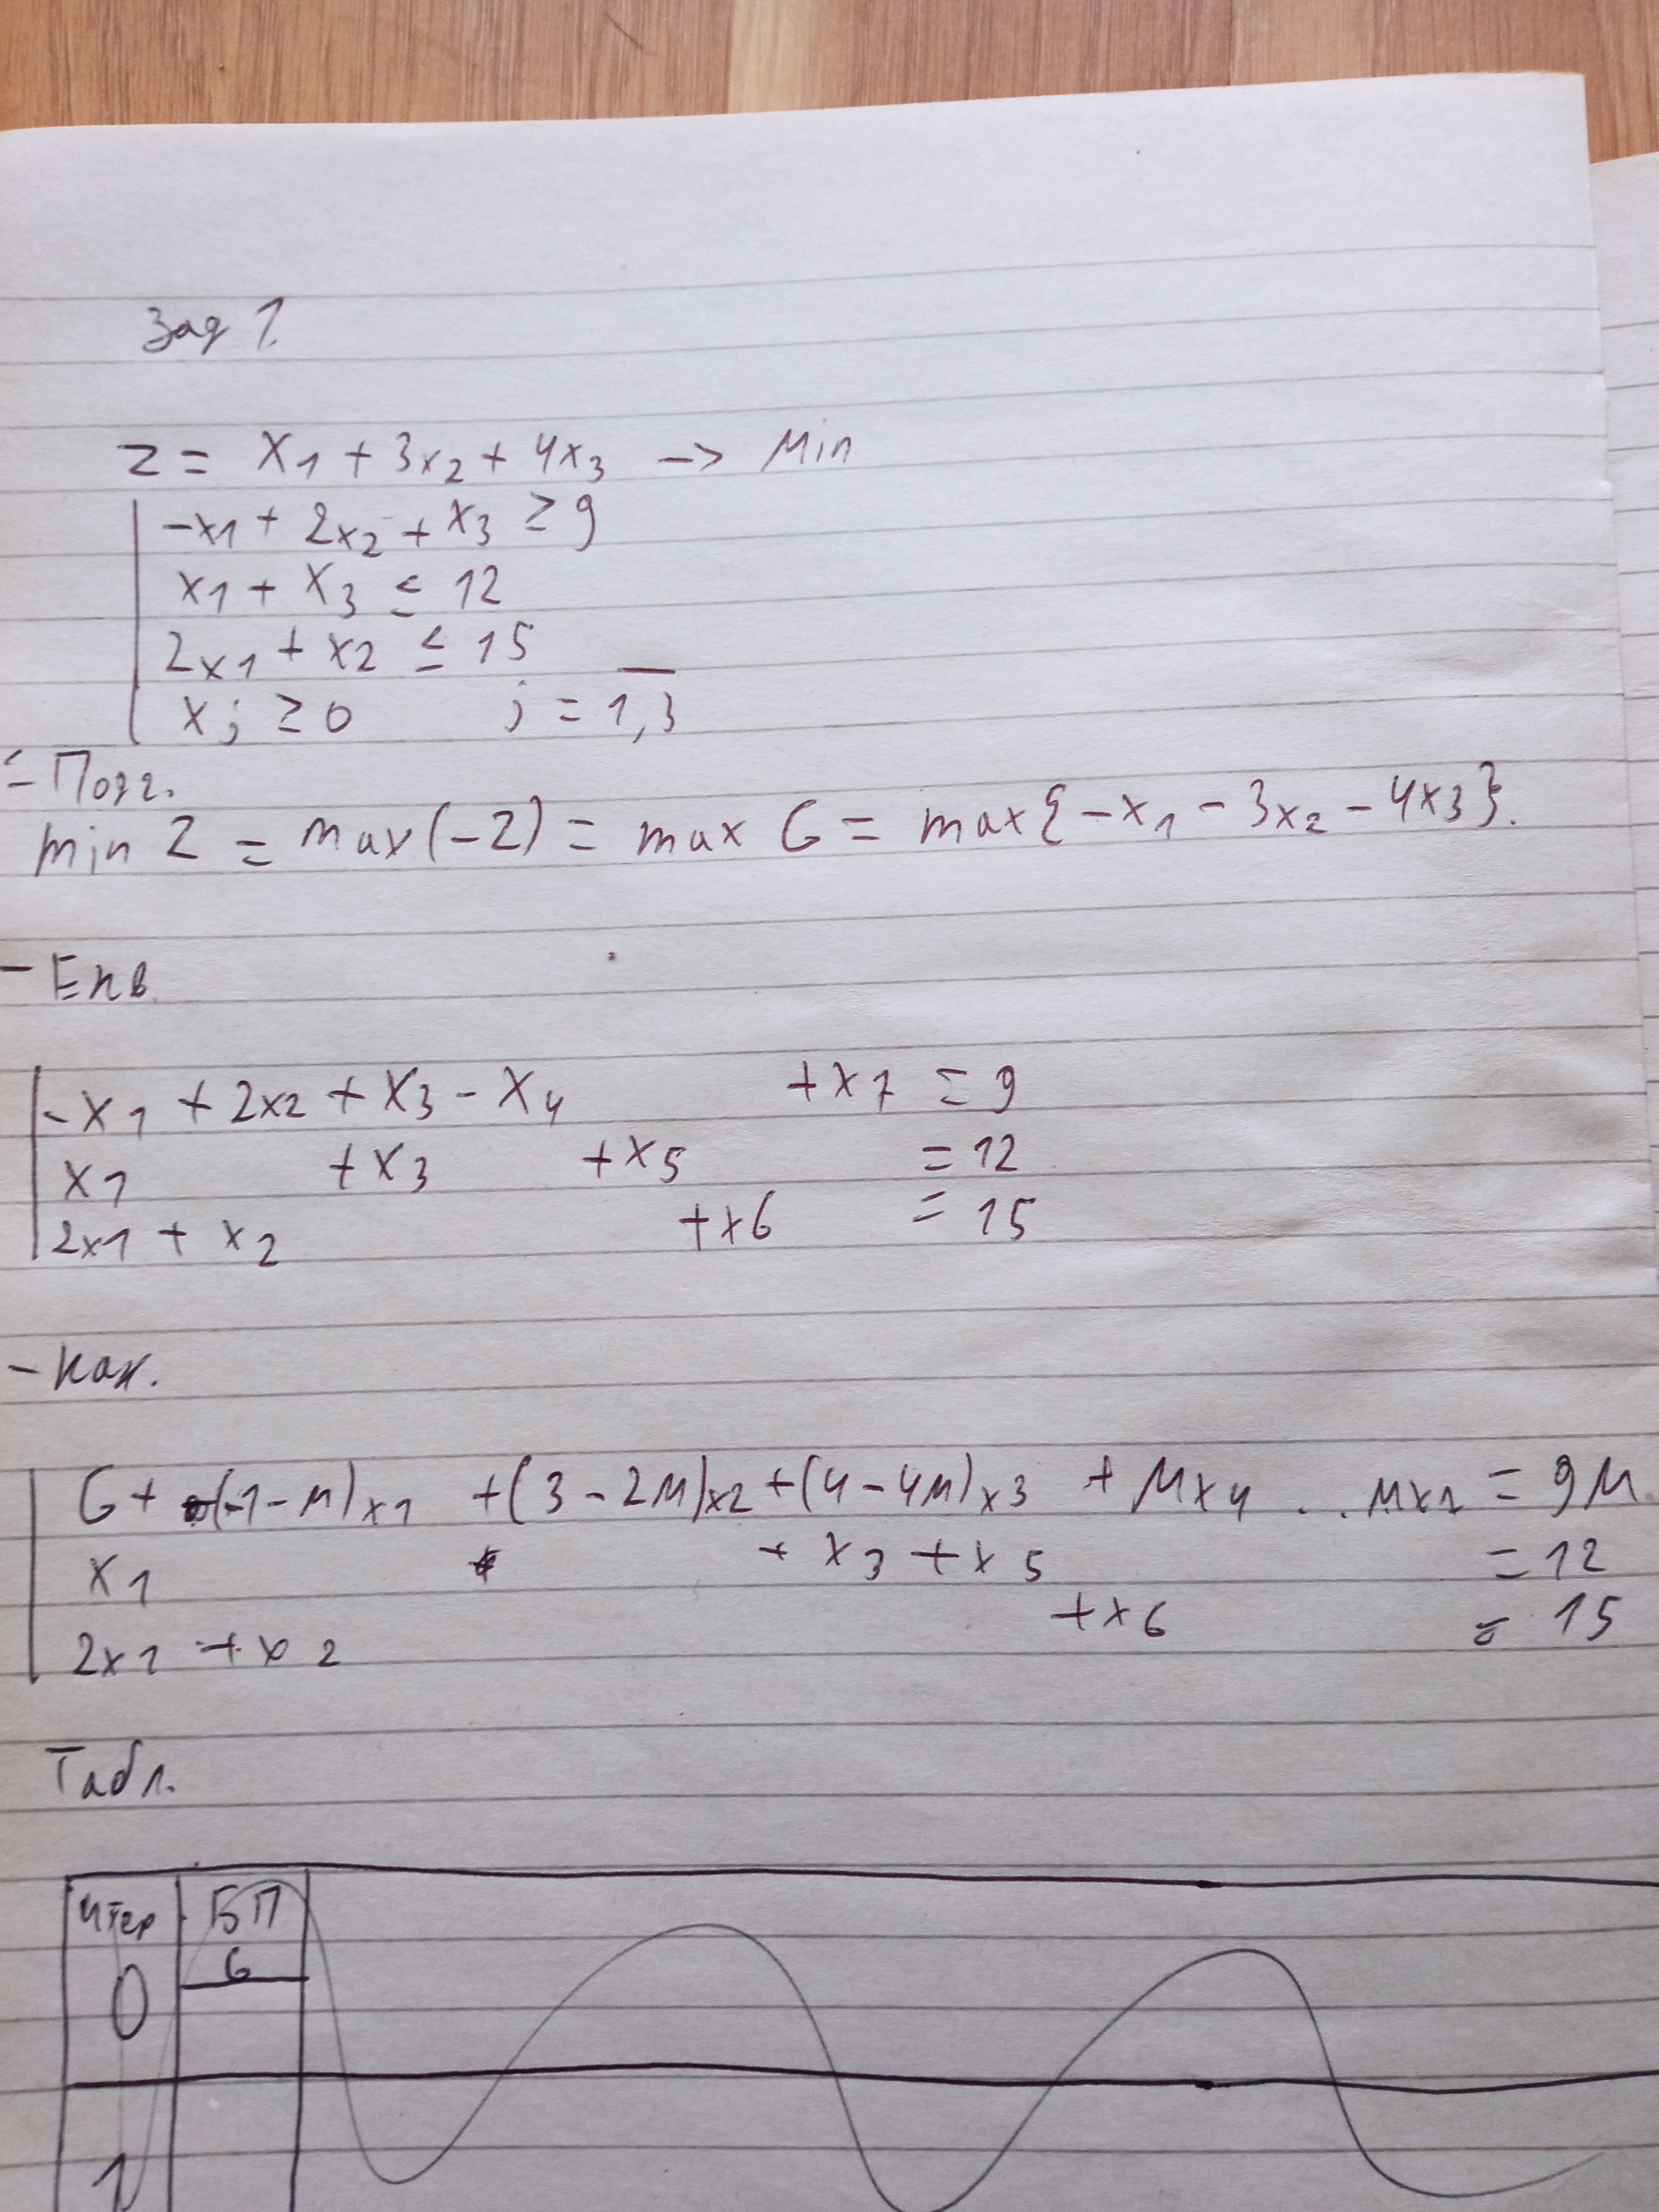 Зад 1.
z = x1 + 3x2 + 4x3 -> Min
-x1 + 2x2 + x3 ≥ 9
x1 + x3 ≤ 12
2x1 + x2 ≤ 15
xj ≥ 0 j = 1,3
- Подг.
min Z = max(-Z) = max G = max{-x1 - 3x2 - 4x3}.
- Екв
-x1 + 2x2 + x3 - x4 + x7 = 9
x1 + x3 + x5 = 12
2x1 + x2 + x6 = 15
- Кан.
G + (-1-M)x1 + (3-2M)x2 + (4-4M)x3 + Mx4 . . . = 9M
x1 + x3 + x5 = 12
2x1 + x2 + x6 = 15
Табл.
Итер БП
G
0
1